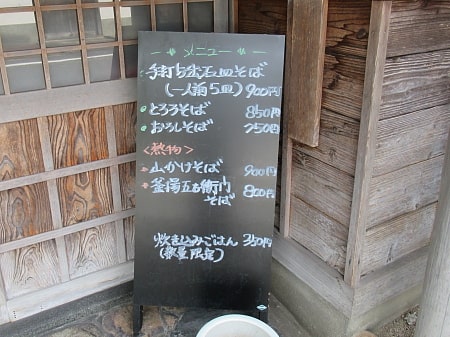 メニュー
手打ち出石皿そば
(一人前5皿) 900円
とろろそば 850円
おろしそば 750円
<熱物>
山かけそば 900円
釜湯五右衛門そば 800円
炊き込みごはん 350円
(数量限定)